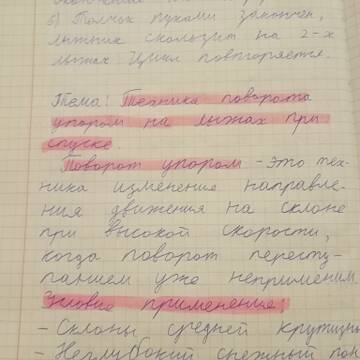 б) Толчок руками закончен,
лыжник скользит на 2-х
лыжах. Цикл повторяется.
Тема: Техника поворота
упором на лыжах при
спуске.
Поворот упором - это тех-
ника изменение направле-
ния движения на склоне
при высокой скорости,
когда поворот пересту-
панием уже неприменим
Условие применение:
- Склоны средней крутизны
- Неглубокий снежный